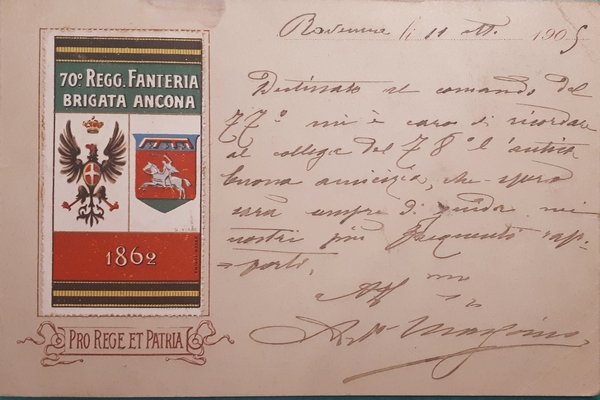 70° REGG. FANTERIA
BRIGATA ANCONA
1862
PRO REGE ET PATRIA
Ravenna li 11 ott. 1905
Destinato al comando del
77° mi è caro di ricordare
al collega del 78° l'antica
buona amicizia, che spero
sarà sempre di guida nei
nostri più frequenti rap-
porti.
Aff